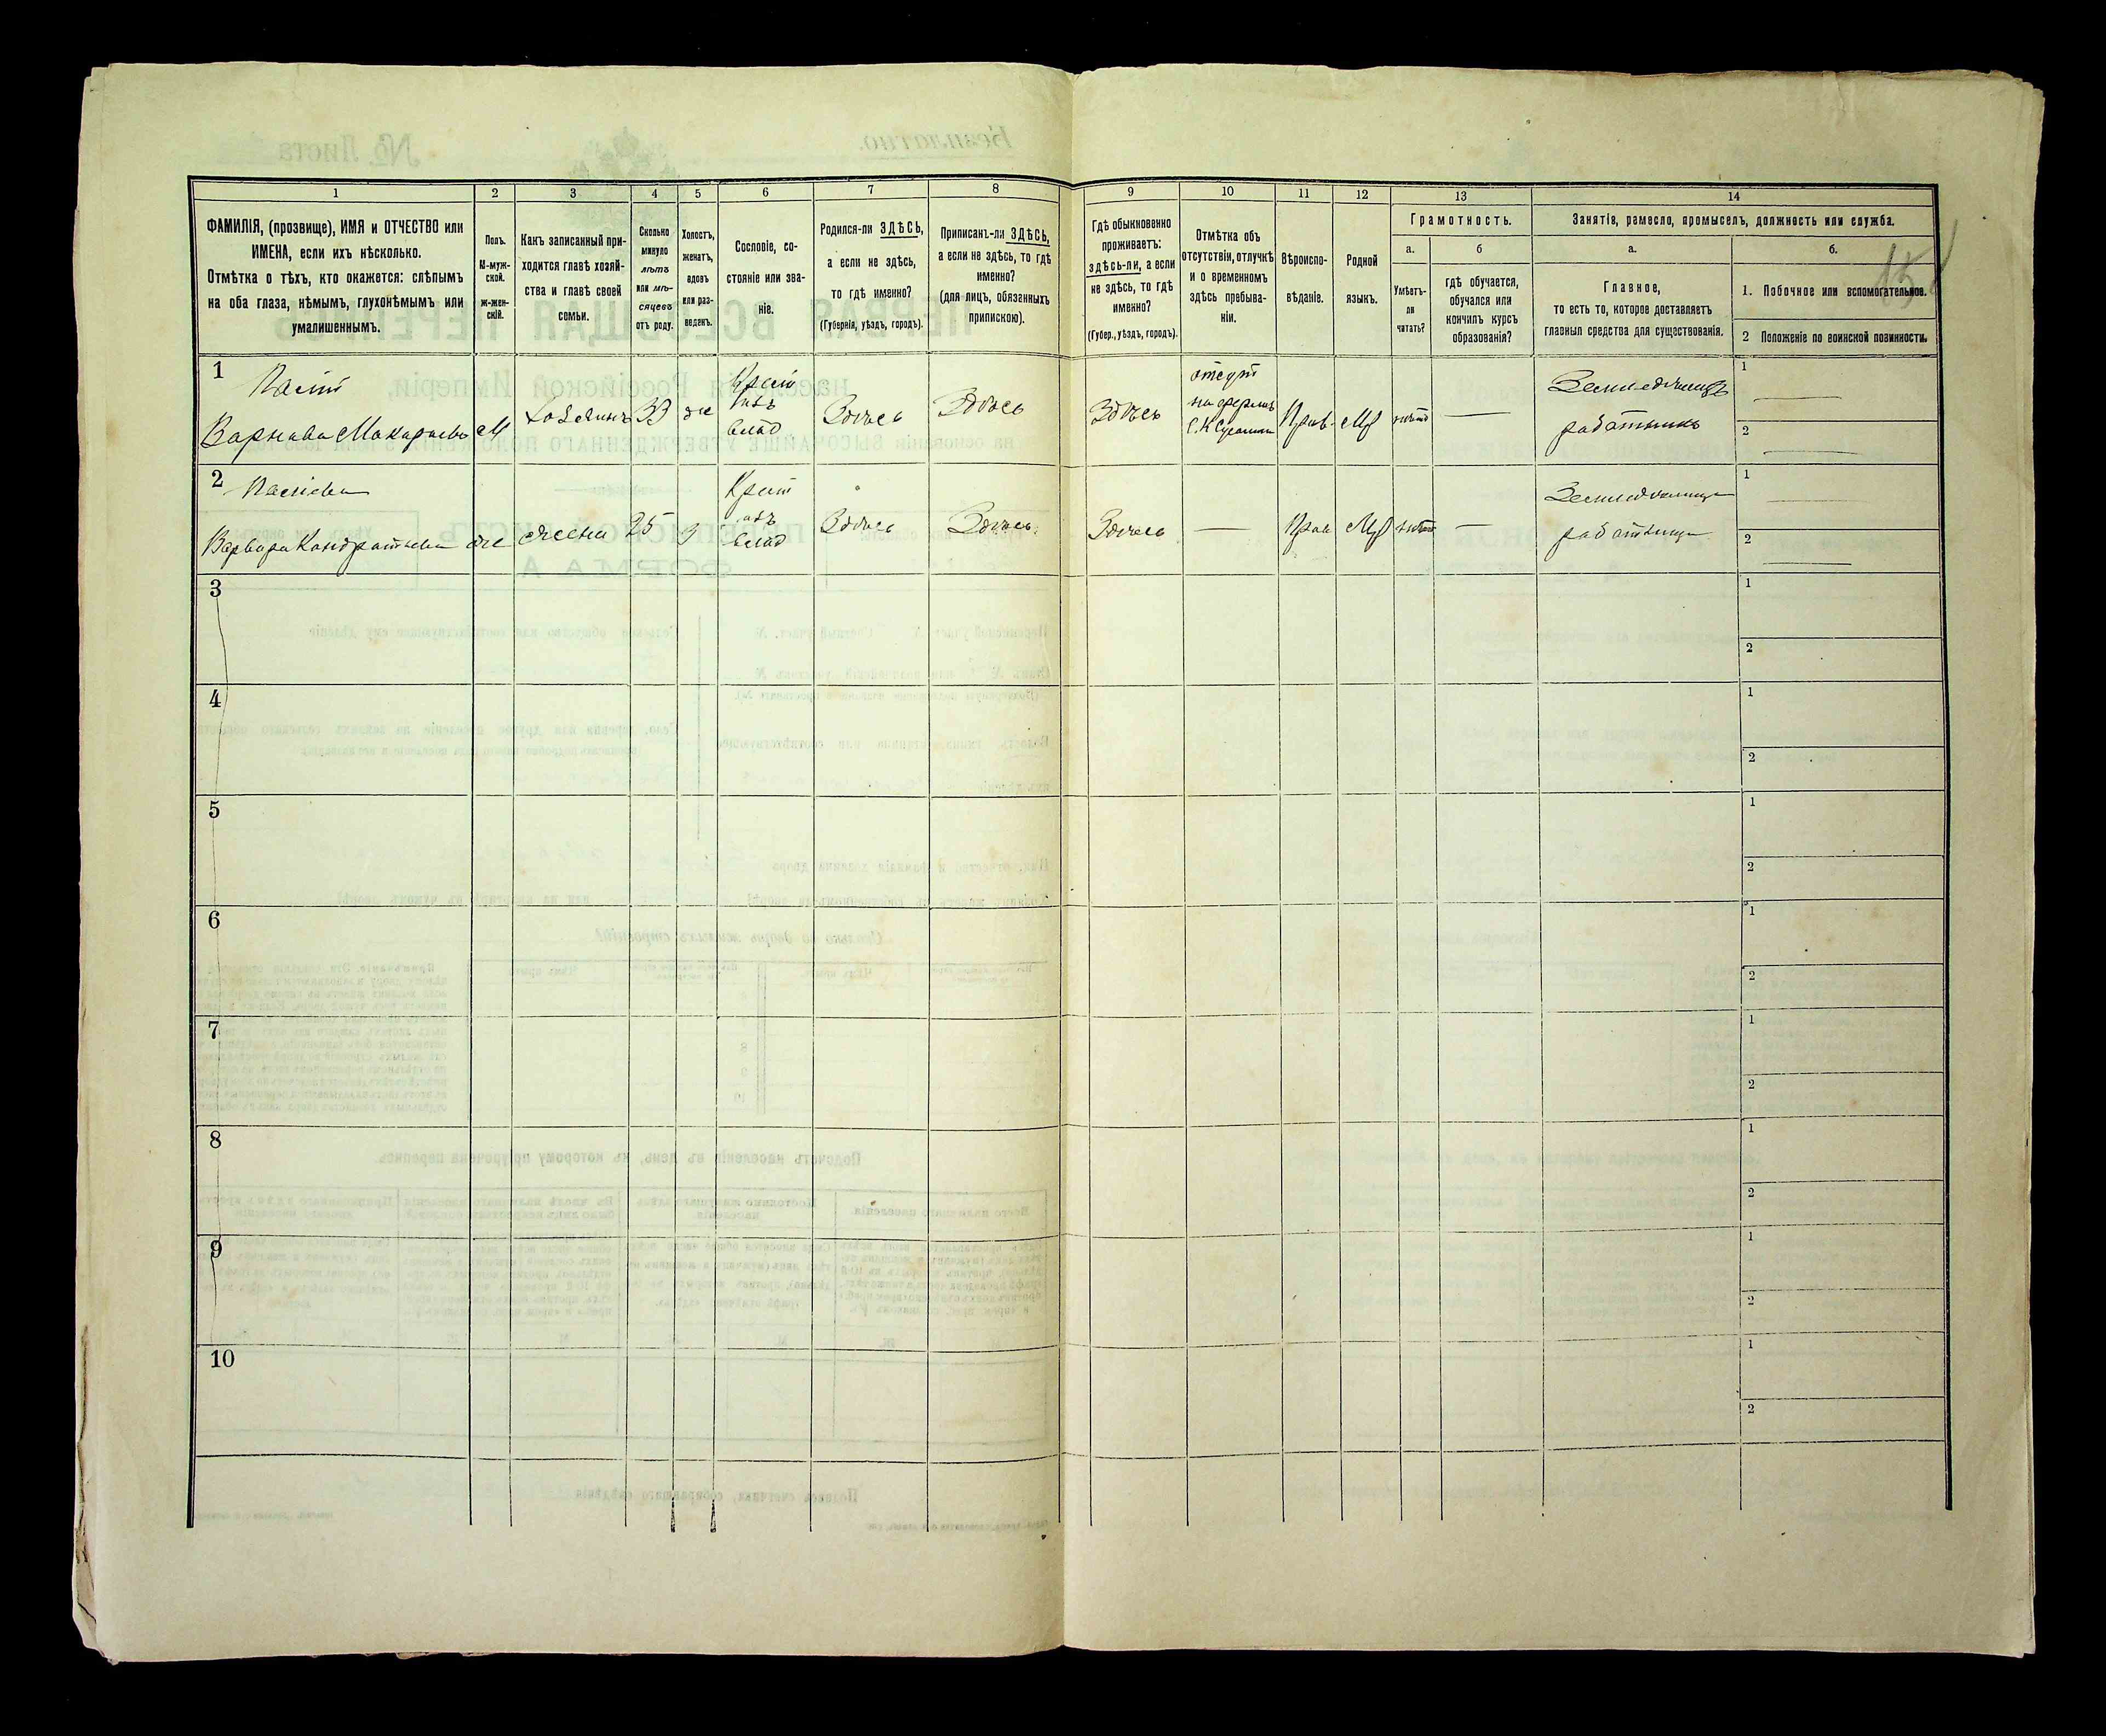 1
2
3
4
5
6
7
8
9
10
11
12
13
14
ФАМИЛІЯ, (прозвище), ИМЯ и ОТЧЕСТВО или
ИМЕНА, если ихъ нѣсколько.
Отмѣтка о тѣхъ, кто окажется: слѣпымъ
на оба глаза, нѣмымъ, глухонѣмымъ или
умалишеннымъ.
Полъ.
М-муж-
ской.
ж-жен-
скій.
Какъ записанный при-
ходится главѣ хозяй-
ства и главѣ своей
семьи.
Сколько
минуло
лѣтъ
или мѣ-
сяцевъ
отъ роду.
Холостъ,
женатъ,
вдовъ
или раз-
веденъ.
Сословіе, со-
стояніе или зва-
ніе.
Родился-ли ЗДѢСЬ,
а если не здѣсь,
то гдѣ именно?
(Губернія, уѣздъ, городъ).
Приписанъ-ли ЗДѢСЬ,
а если не здѣсь, то гдѣ
именно?
(для лицъ, обязанныхъ
припискою).
Гдѣ обыкновенно
проживаетъ:
здѣсь-ли, а если
не здѣсь, то гдѣ
именно?
(Губер., уѣздъ, городъ).
Отмѣтка объ
отсутствіи, отлучкѣ
и о временномъ
здѣсь пребыва-
ніи.
Вѣроиспо-
вѣданіе.
Родной
языкъ.
Грамотность.
а.
б
Умѣетъ-
ли
читать?
гдѣ обучается,
обучался или
кончилъ курсъ
образованія?
Занятія, ремесло, промыселъ, должность или служба.
а.
б.
Главное,
то есть то, которое доставляетъ
главныя средства для существованія.
1. Побочное или вспомогательное.
2 Положеніе по воинской повинности.
1
Варнава Макарьевъ М Хозяинъ 33 же
Крест
влад
Здѣсь Здѣсь Здѣсь
отсут
на фермѣ
Прав. Мр нѣтъ —
работникъ
1 —
2 —
2
Варвара Кондратьева же жена 25 з
Крест
влад
Здѣсь Здѣсь Здѣсь — Прав Мр нѣтъ —
работница
1 —
2 —
3
1
2
4
1
2
5
1
2
6
1
2
7
1
2
8
1
2
9
1
2
10
1
2